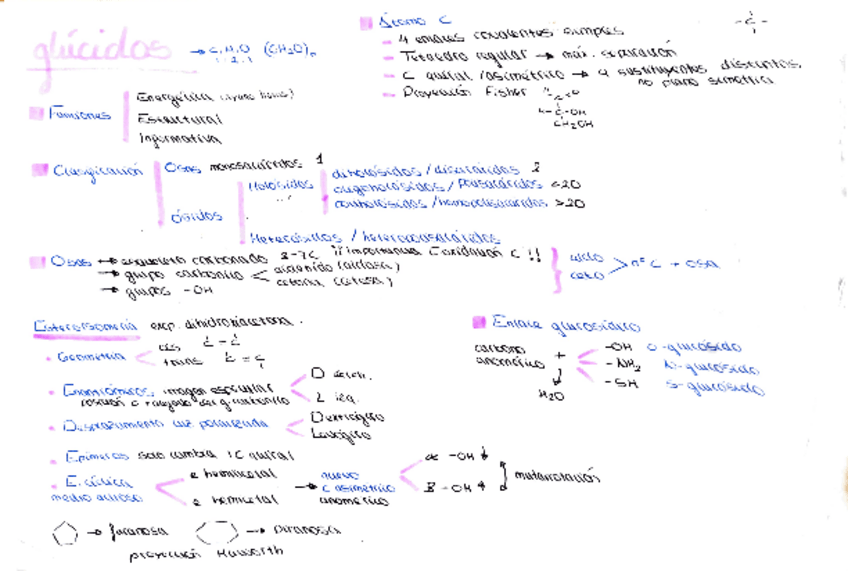 glúcidos → C,H,O (CH₂O)n
1:2:1
Átomo C
- 4 enlaces covalentes simples
- Tetraedro regular → máx. separación
- C quiral/asimétrico → 4 sustituyentes distintos, no plano simetría
- Proyección Fisher
-C-OH
CH₂OH
Funciones
Energética
Estructural
Informativa
Clasificación
Osas monosacáridos 1
Ósidos
Holósidos
diholósidos/disacáridos 2
oligoholósidos/ <20
poliholósidos/homopolisacáridos >20
Heterósidos /
Osas → esqueleto carbonado 3-7C ¡¡importancia oxidación C!!
→ grupo carbonilo
aldehído (aldosa)
cetona (cetosa)
→ grupos -OH
aldo
ceto
> nº C + OSA
Estereoisomería exc. dihidroxiacetona.
• Geometría
cis C - C
trans C = C
• Enantiómeros imagen especular
posición C + alejado del g. carbonilo
D derch.
L izq.
• Desplazamiento luz polarizada
Dextrógiro
Levógiro
• Epímeros solo cambia 1C quiral
• E. cíclica
medio acuoso
e hemiacetal
e hemicetal
→ nuevo
C asimétrico
anomérico
α -OH ↓
β -OH ↑
mutarrotación
→ furanosa
→ piranosa
proyección Haworth
Enlace glucosídico
carbono
anomérico +
↓
H₂O
-OH O-glucósido
-NH₂ N-glucósido
-SH S-glucósido